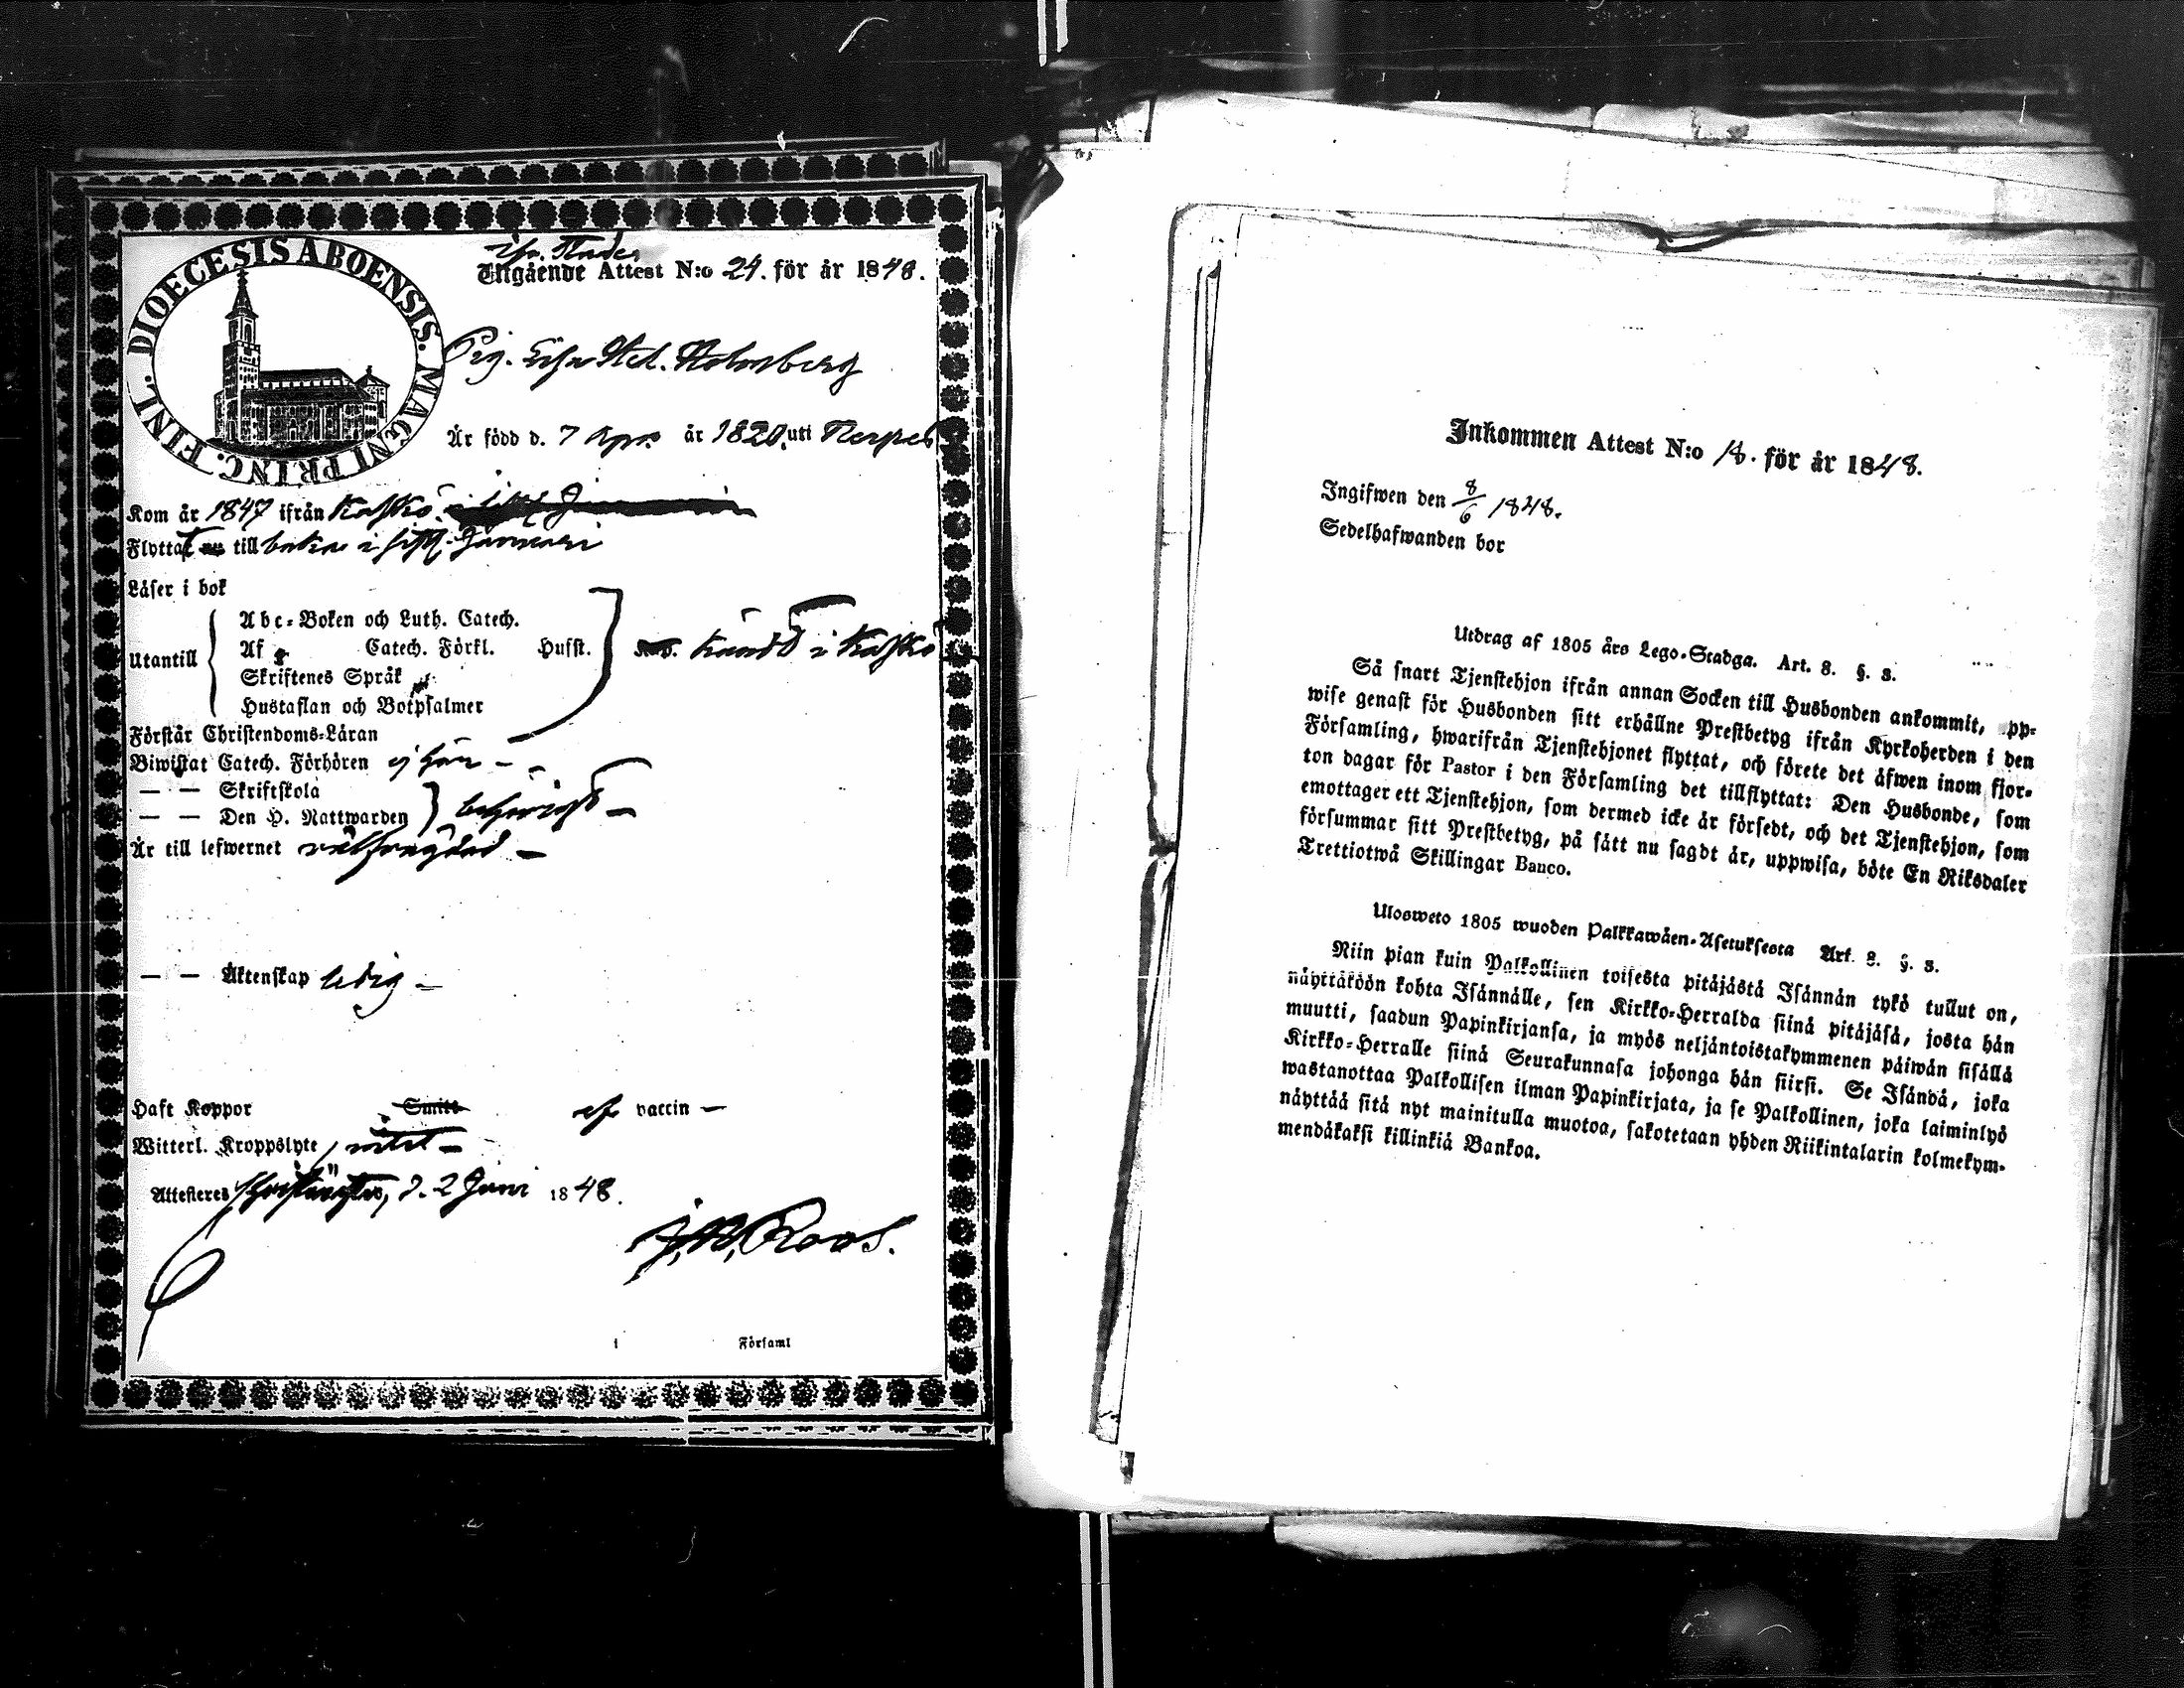 DIOECESIS ABOENSIS. MAGNI PRINC. FINL.
ifr. Staden
Utgående Attest N:o 24. för år 1848.
Pig. Lisa Holmberg
Är född d. 7 Apr. år 1820 uti Nerpes
Kom år 1847 ifrån Kaskö
Flyttat till bakar i sistl. Januari
Läser i bok
Utantill
Abc-Boken och Luth. Catech.
Af Catech. Förkl. Husst.
Skriftenes Språk
Hustaflan och Botpsalmer
kändt i Kaskö
Förstår Christendoms-Läran
Biwistat Catech. Förhören ej här —
— — Skriftskola
— — Den H. Nattwarden
behörigt —
Är till lefwernet välfrägdad —
— — Äktenskap ledig —
Haft Koppor Smitt vaccin —
Witterl. Kroppslyte, vitet —
Attesteres Christinæstad, d. 2 Juni 1848.
Roos.
i Församl
Inkommen Attest N:o 18. för år 1848.
Ingifwen den 8/6 1848.
Sedelhafwanden bor
Utdrag af 1805 års Lego-Stadga. Art. 8. §. 3.
Så snart Tjenstehjon ifrån annan Socken till Husbonden ankommit, upp-
wise genast för Husbonden sitt erhållne Prestbetyg ifrån Kyrkoherden i den
Församling, hwarifrån Tjenstehjonet flyttat, och förete det äfwen inom fjor-
ton dagar för Pastor i den Församling det tillflyttat: Den Husbonde, som
emottager ett Tjenstehjon, som dermed icke är försedt, och det Tjenstehjon, som
försummar sitt Prestbetyg, på sätt nu sagdt är, uppwisa, böte En Riksdaler
Trettiotwå Skillingar Banco.
Ulosweto 1805 wuoden Palkkawäen-Asetuksesta Art. 8. §. 3.
Niin pian kuin Palkollinen toisesta pitäjästä Isännän tykö tullut on,
näyttäköön kohta Isännälle, sen Kirkko-Herralda siinä pitäjäsä, josta hän
muutti, saadun Papinkirjansa, ja myös neljäntoistakymmenen päiwän sisällä
Kirkko-Herralle siinä Seurakunnasa johonga hän siirsi. Se Isändä, joka
wastanottaa Palkollisen ilman Papinkirjata, ja se Palkollinen, joka laiminlyö
näyttää sitä nyt mainitulla muotoa, sakotetaan yhden Riikintalarin kolmekym-
mendäkaksi killinkiä Bankoa.